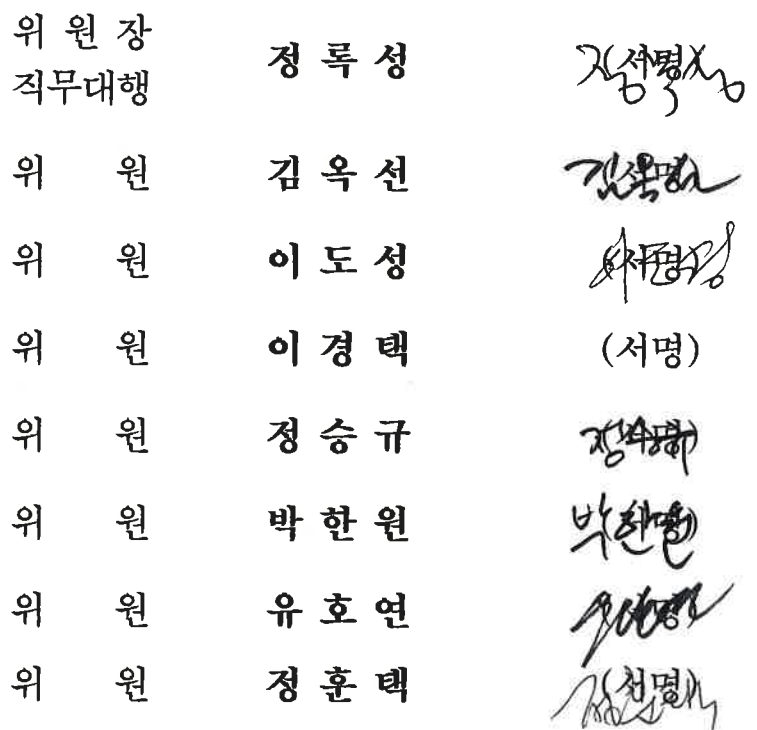 위 원 장
직무대행 정 록 성 (서명)
위 원 김 옥 선 (서명)
위 원 이 도 성 (서명)
위 원 이 경 택 (서명)
위 원 정 승 규 (서명)
위 원 박 한 원 (서명)
위 원 유 호 연 (서명)
위 원 정 훈 택 (서명)